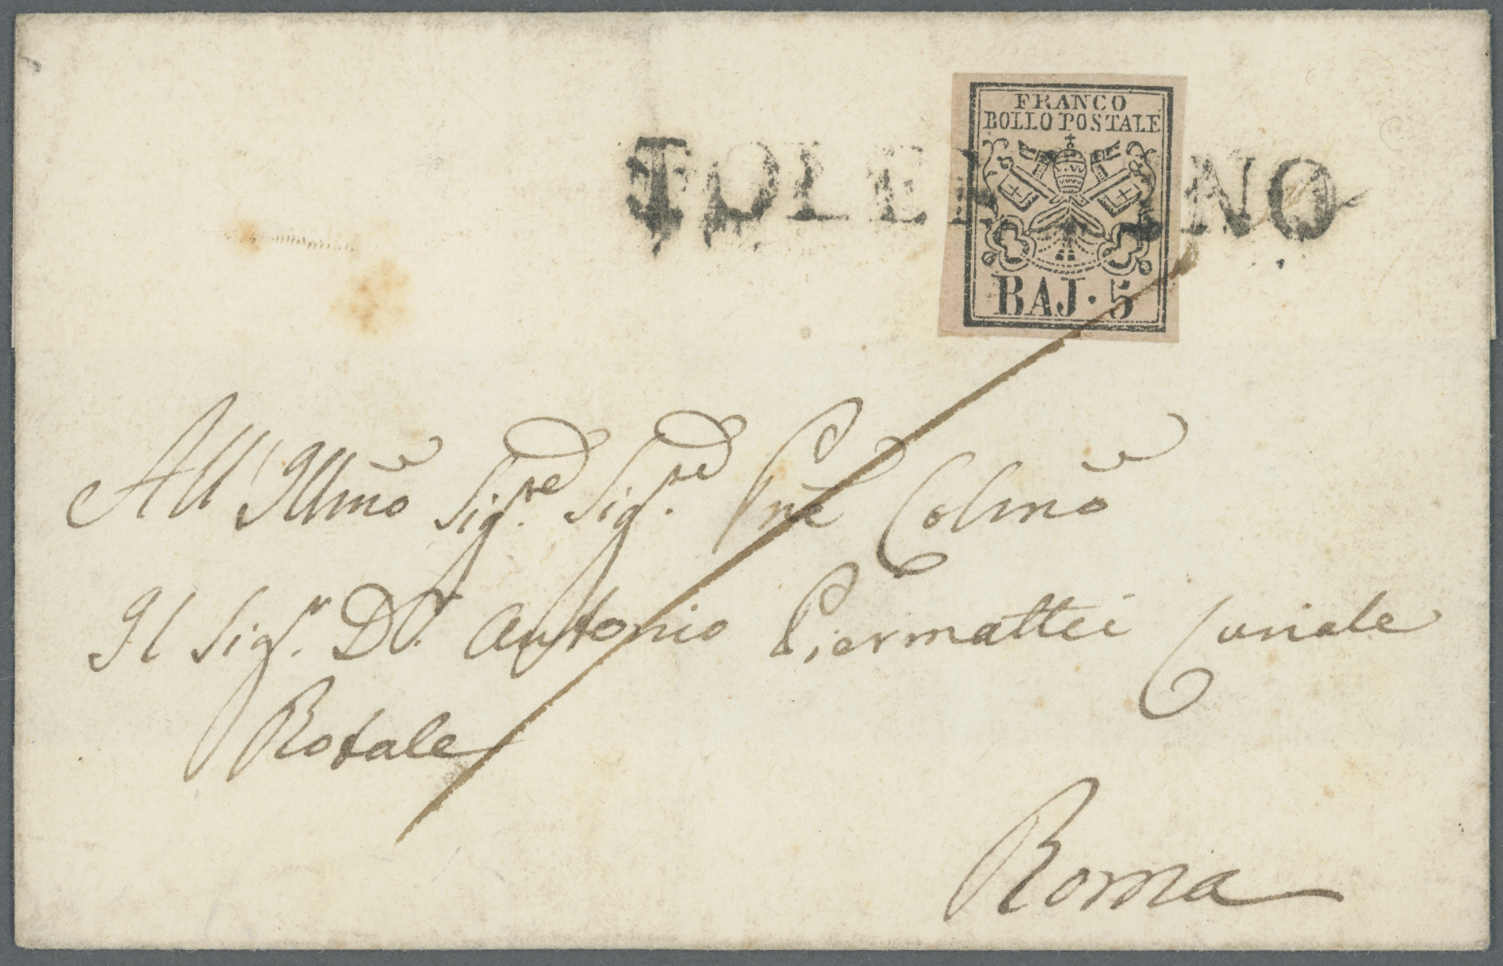 FRANCO
BOLLO POSTALE
TOLENTINO
BAJ. 5
All' Illmo Sig.re Sig.re Pne Colmo
Il Sig.r Dr. Antonio Piermattei Curiale
Rotale
Roma